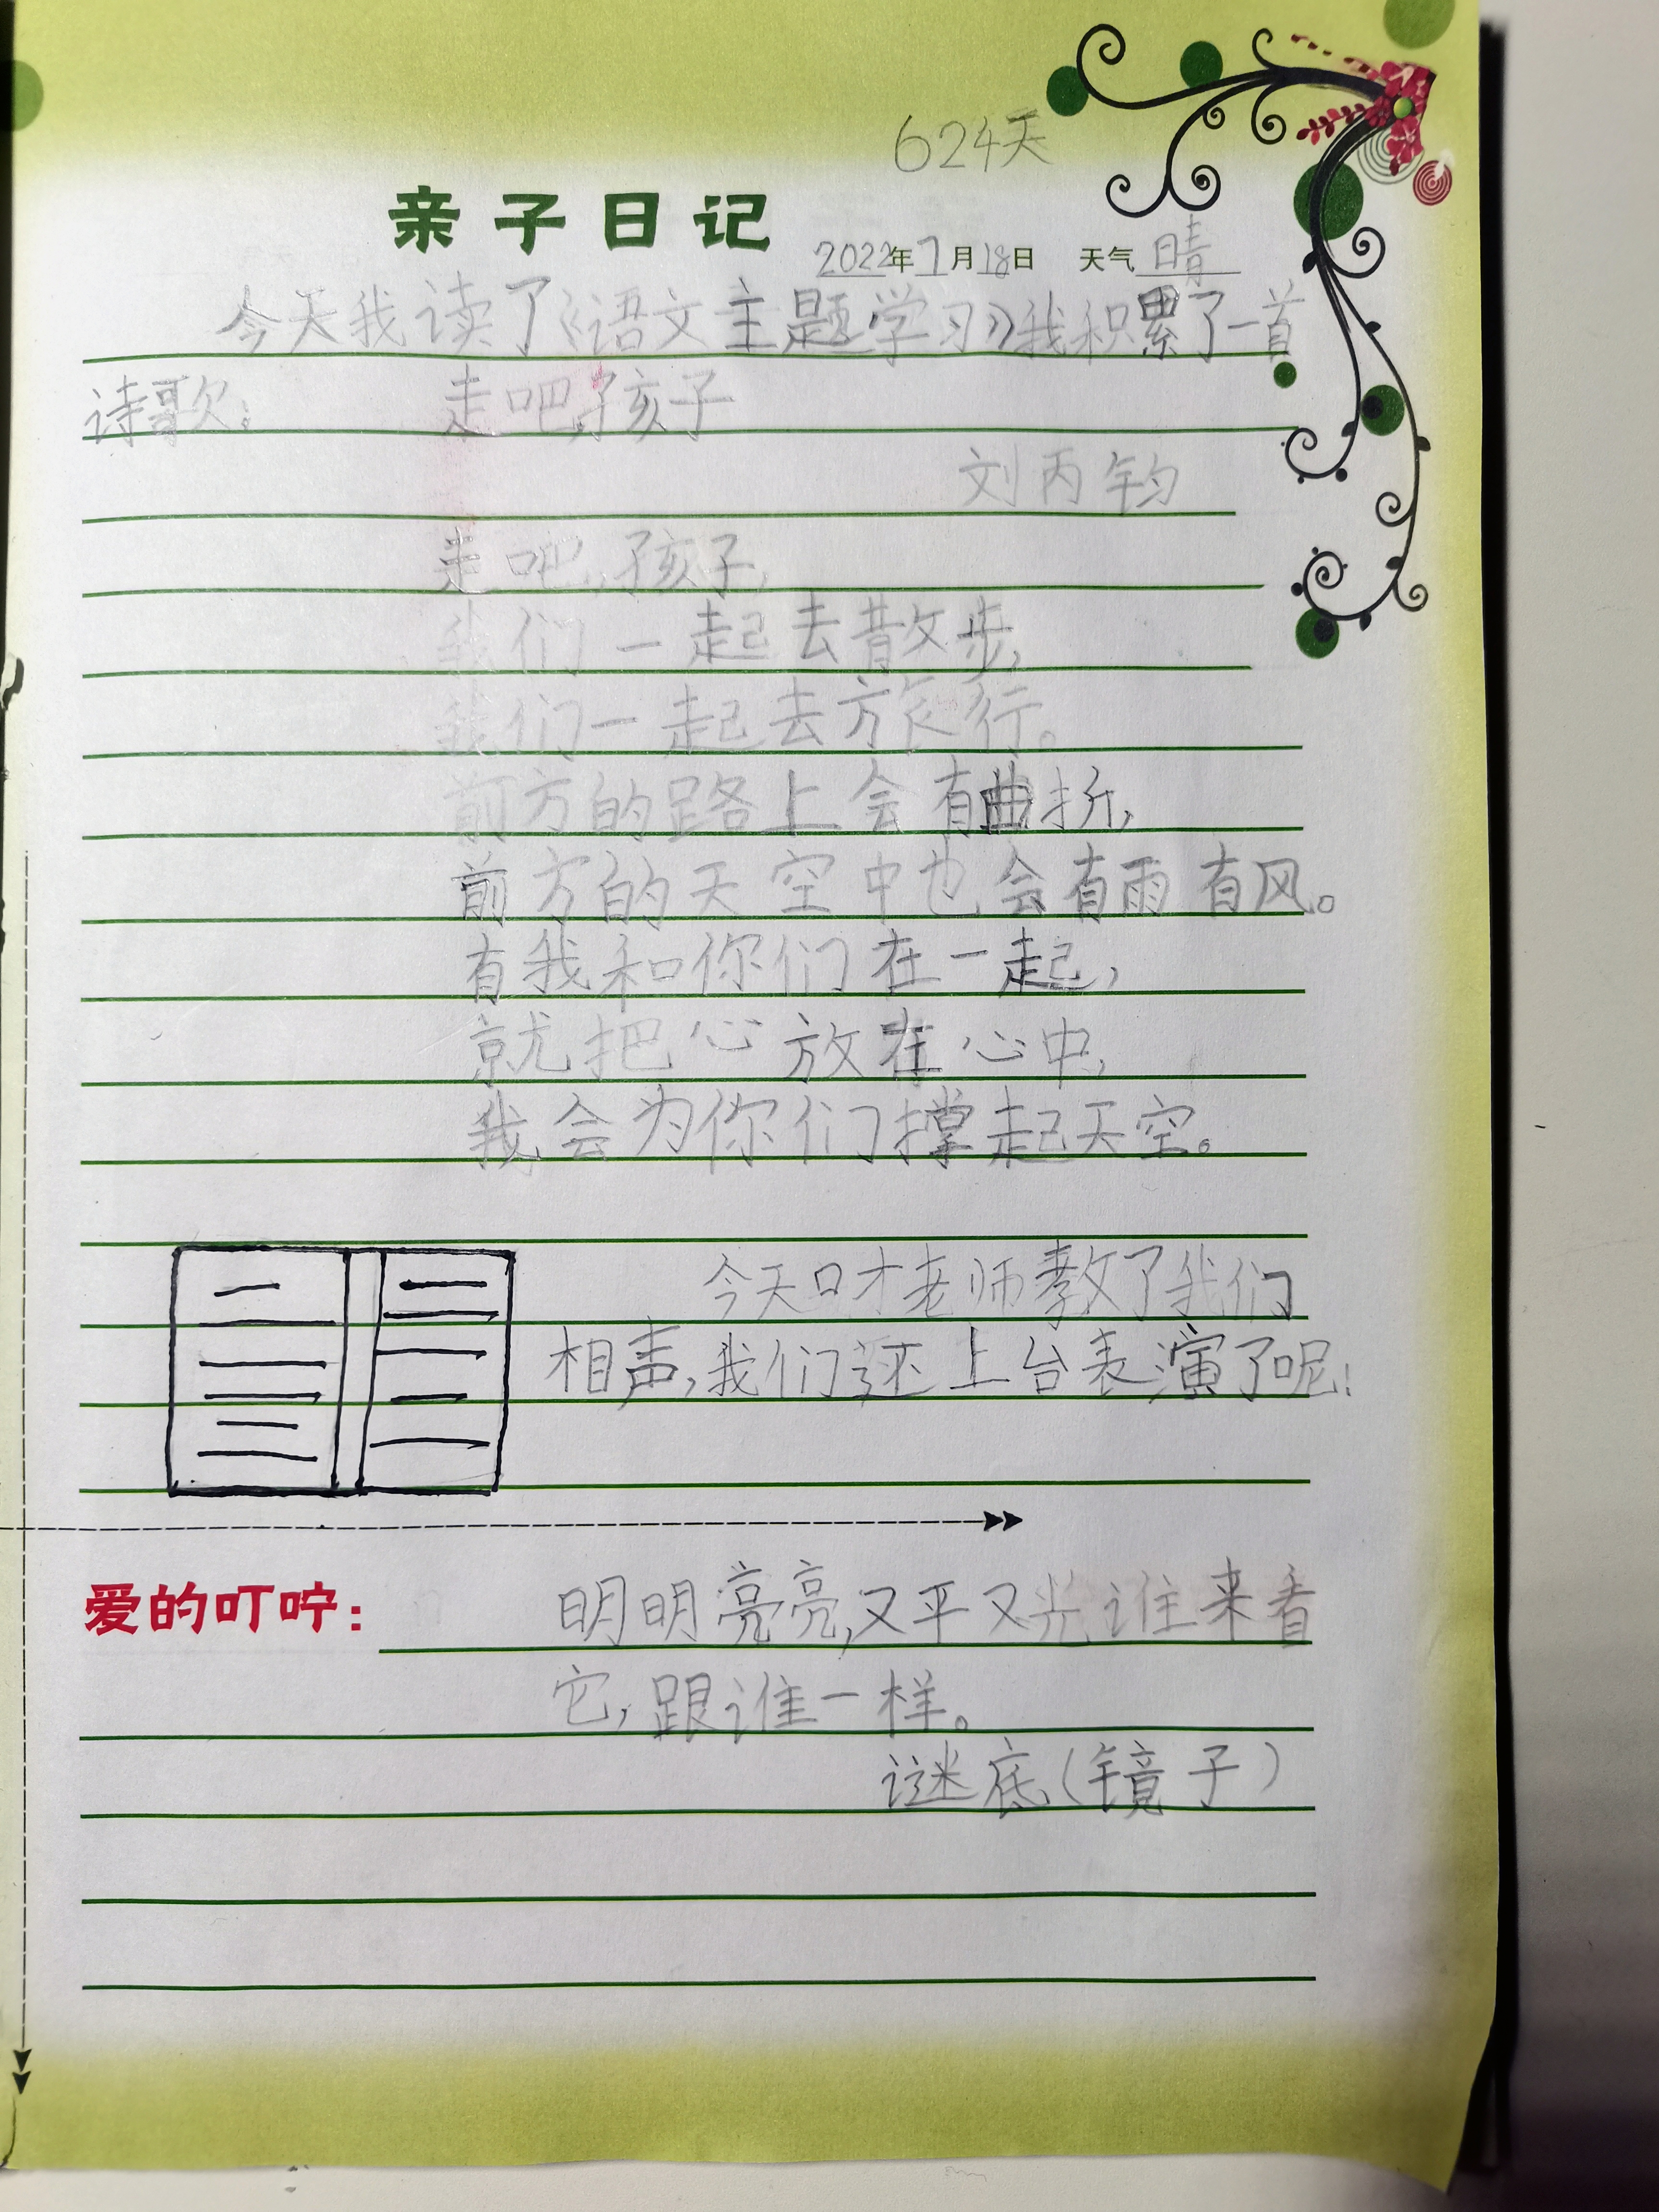 624天
亲子日记
2022年7月18日 天气 晴
今天我读了《语文主题学习》我积累了一首
诗歌: 走吧,孩子
刘丙钧
走吧,孩子,
我们一起去散步,
我们一起去旅行。
前方的路上会有曲折,
前方的天空中也会有雨有风。
有我和你们在一起,
就把心放在心中,
我会为你们撑起天空。
今天口才老师教了我们
相声,我们还上台表演了呢!
爱的叮咛: 明明亮亮,又平又光谁来看
它,跟谁一样。
谜底(镜子)